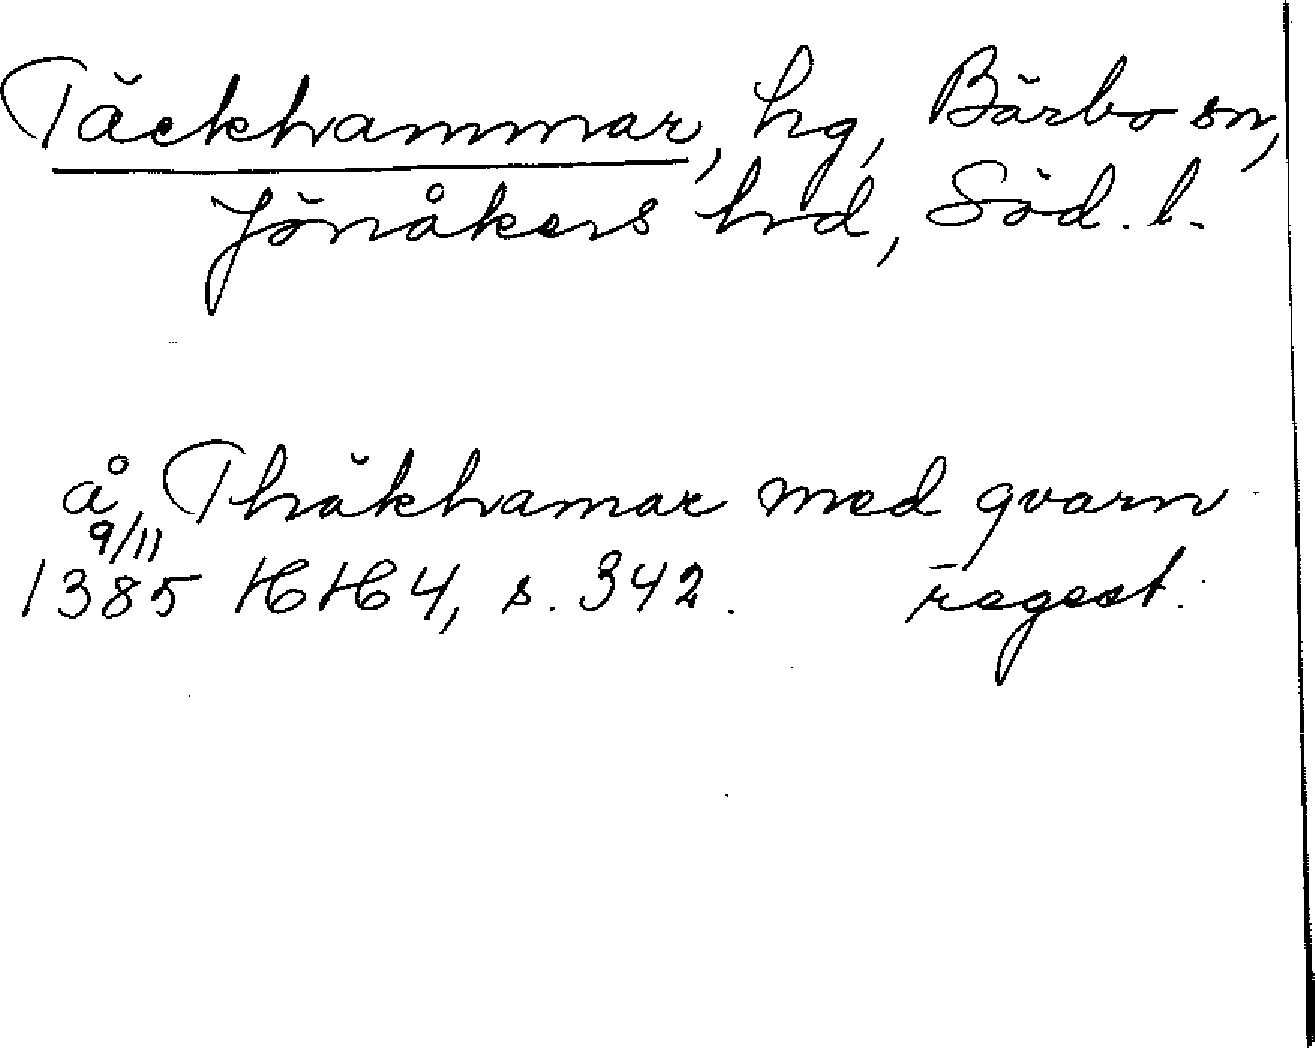 Täckhammar, hg, Bärbo sn,
Jönåkers hrd, Söd. l.
å Thäkhamar med qvarn
9/11
1385 HH 4, s. 342. regest.